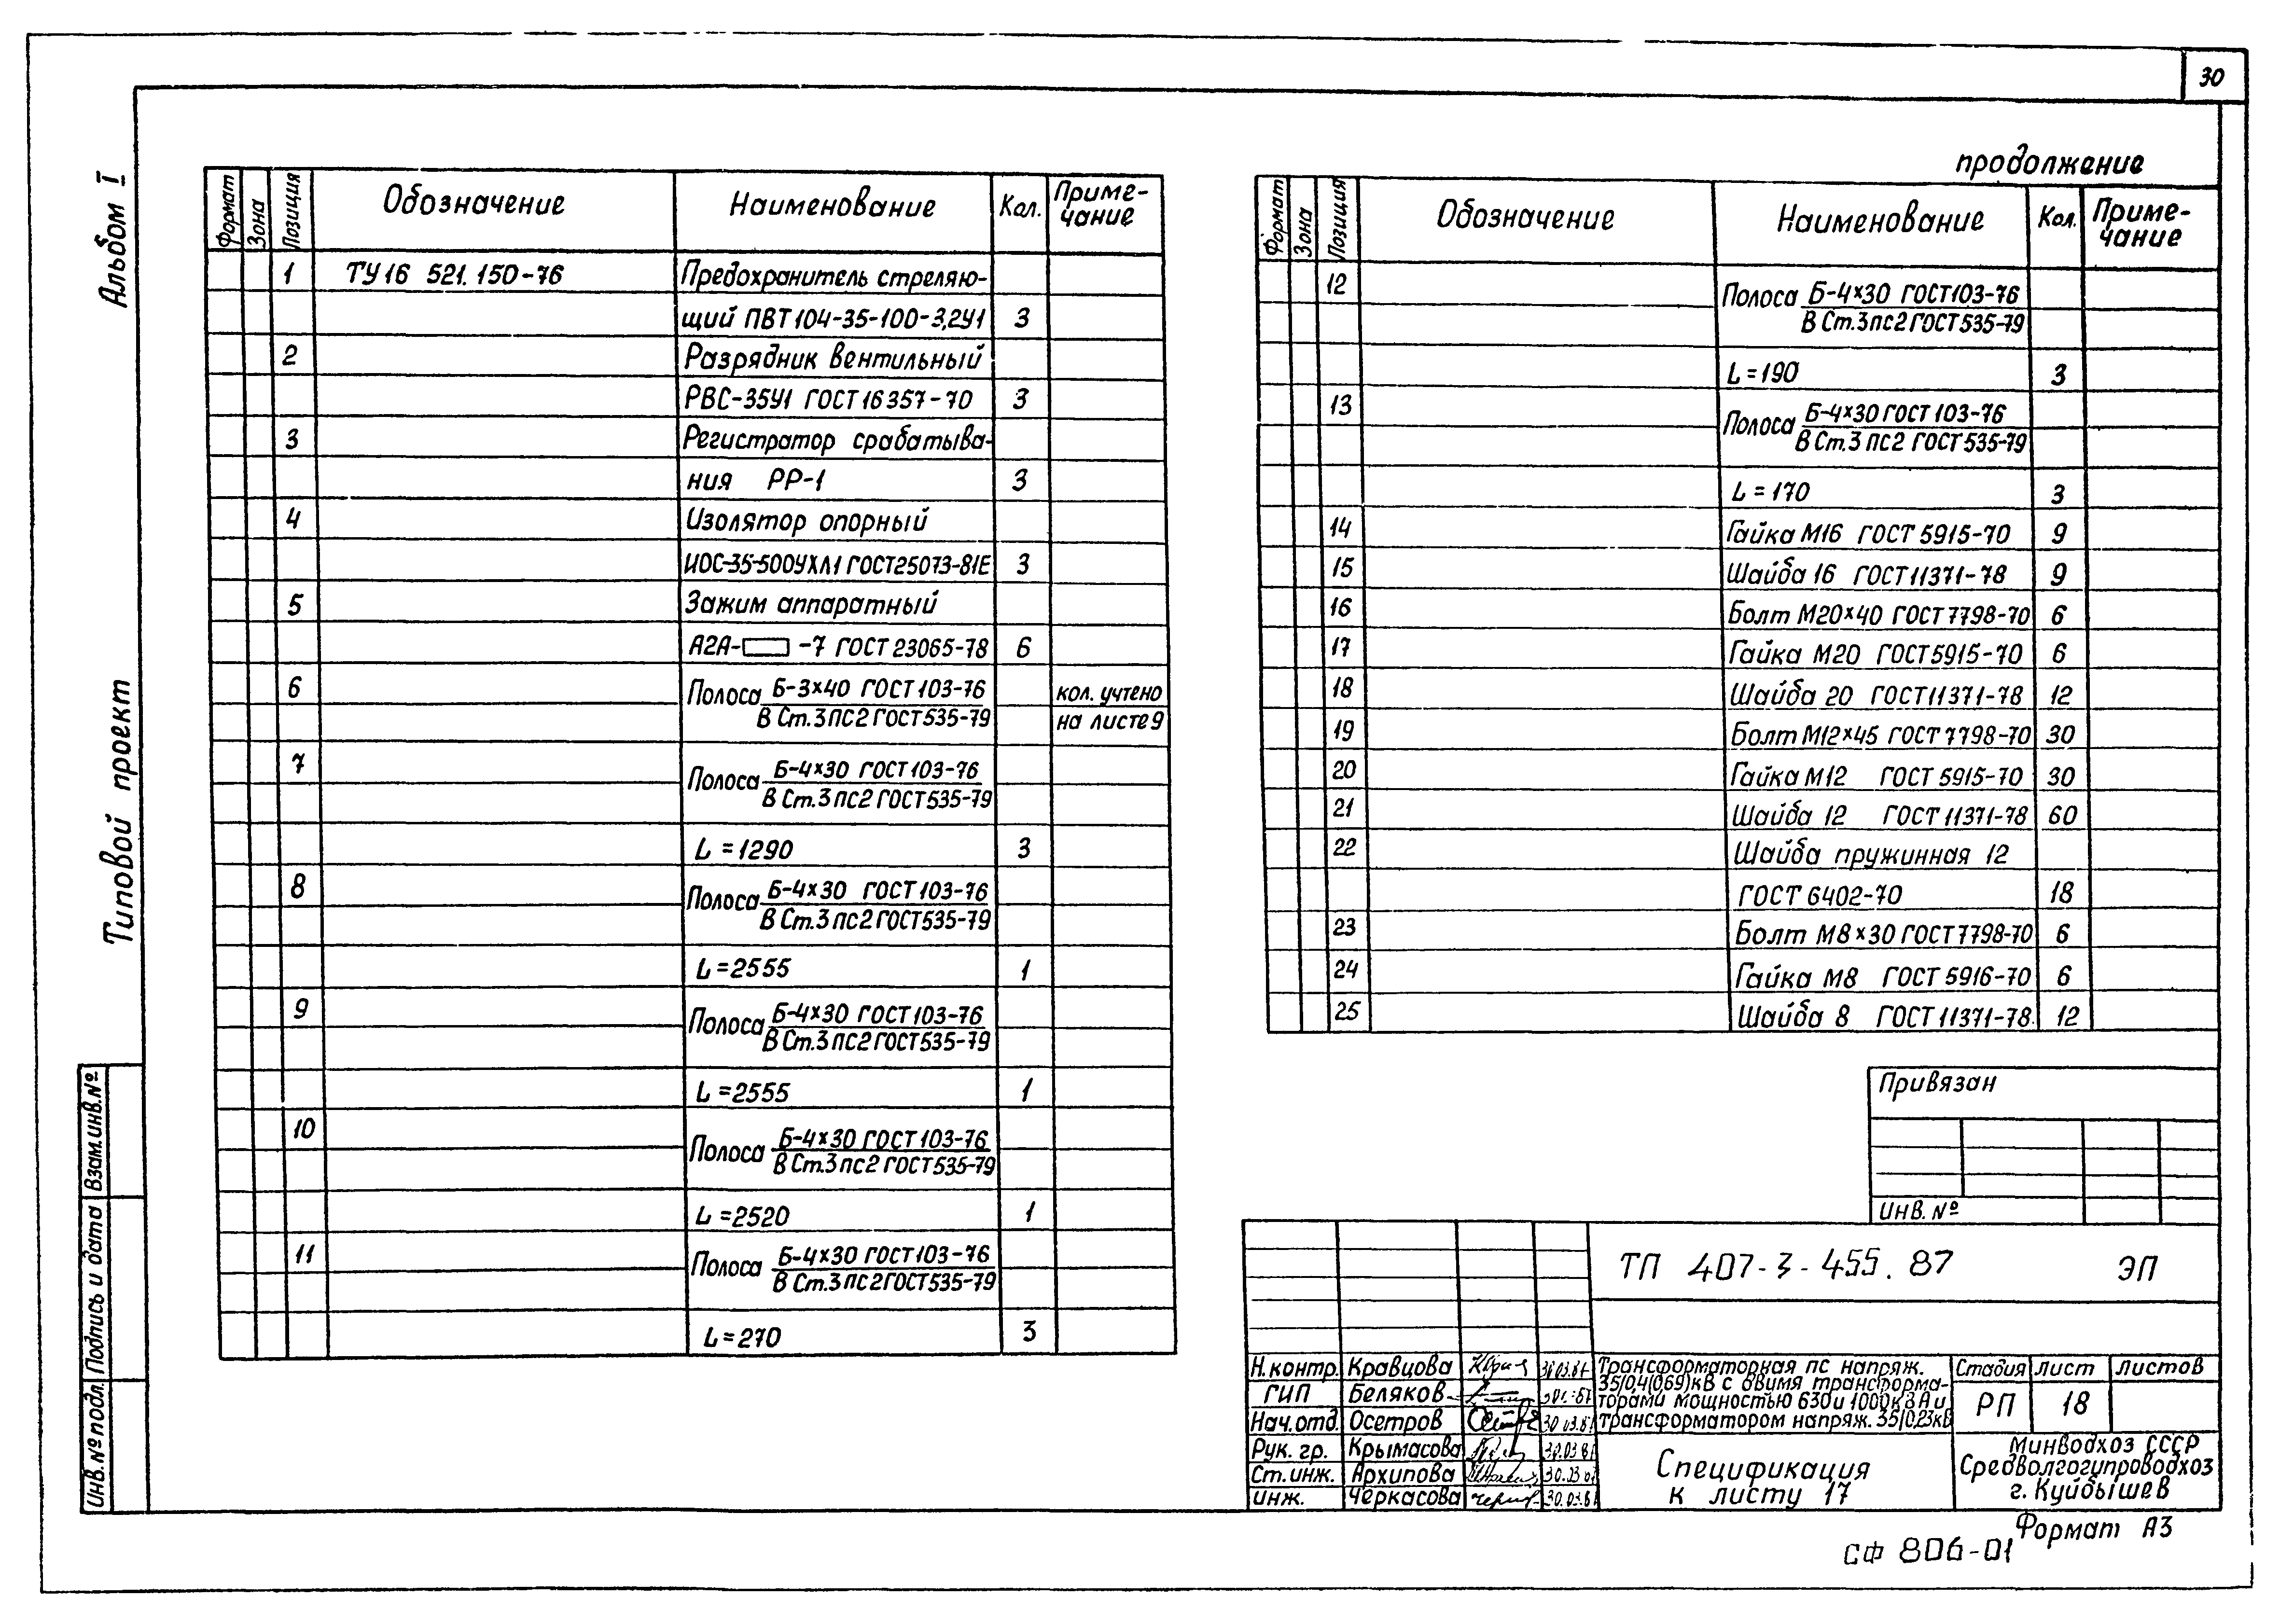 30
Альбом I
Типовой проект
Взам.инв.№
Подпись и дата
Инв.№ подл.
Формат Зона Позиция Обозначение Наименование Кол. Приме-
чание
1 ТУ16 521.150-76 Предохранитель стреляю-
щий ПВТ104-35-100-3,2У1 3
2 Разрядник вентильный
РВС-35У1 ГОСТ16357-70 3
3 Регистратор срабатыва-
ния РР-1 3
4 Изолятор опорный
ИОС-35-500УХЛ1 ГОСТ25073-81Е 3
5 Зажим аппаратный
А2А- -7 ГОСТ 23065-78 6
6 Полоса Б-3×40 ГОСТ103-76 кол. учтено
В Ст.3ПС2 ГОСТ535-79 на листе9
7 Полоса Б-4×30 ГОСТ103-76
В Ст.3пс2 ГОСТ535-79
L=1290 3
8 Полоса Б-4×30 ГОСТ103-76
В Ст.3пс2 ГОСТ535-79
L=2555 1
9 Полоса Б-4×30 ГОСТ103-76
В Ст.3пс2 ГОСТ535-79
L=2555 1
10 Полоса Б-4×30 ГОСТ103-76
В Ст.3пс2 ГОСТ535-79
L=2520 1
11 Полоса Б-4×30 ГОСТ103-76
В Ст.3пс2 ГОСТ535-79
L=270 3
продолжение
Формат Зона Позиция Обозначение Наименование Кол. Приме-
чание
12 Полоса Б-4×30 ГОСТ103-76
В Ст.3пс2 ГОСТ535-79
L=190 3
13 Полоса Б-4×30 ГОСТ103-76
В Ст.3 пс2 ГОСТ535-79
L=170 3
14 Гайка М16 ГОСТ 5915-70 9
15 Шайба 16 ГОСТ11371-78 9
16 Болт М20×40 ГОСТ 7798-70 6
17 Гайка М20 ГОСТ5915-70 6
18 Шайба 20 ГОСТ11371-78 12
19 Болт М12×45 ГОСТ 7798-70 30
20 Гайка М12 ГОСТ 5915-70 30
21 Шайба 12 ГОСТ 11371-78 60
22 Шайба пружинная 12
ГОСТ 6402-70 18
23 Болт М8×30 ГОСТ7798-70 6
24 Гайка М8 ГОСТ 5916-70 6
25 Шайба 8 ГОСТ 11371-78. 12
Привязан
Инв. №
ТП 407-3-455.87 ЭП
Н.контр. Кравцова 30.03.87
ГИП Беляков
Нач.отд. Осетров 30.03.87
Рук. гр. Крымасова 30.03.87
Ст.инж. Архипова 30.03.87
Инж. Черкасова 30.03.87
Трансформаторная пс напряж.
35/0,4(0,69)кВ с двумя трансформа-
торами мощностью 630и 1000кВА и
трансформатором напряж. 35/0,23кВ
Стадия Лист Листов
РП 18
Спецификация
к листу 17
Минводхоз СССР
Средволгогипроводхоз
г. Куйбышев
Формат А3
СФ 806-01